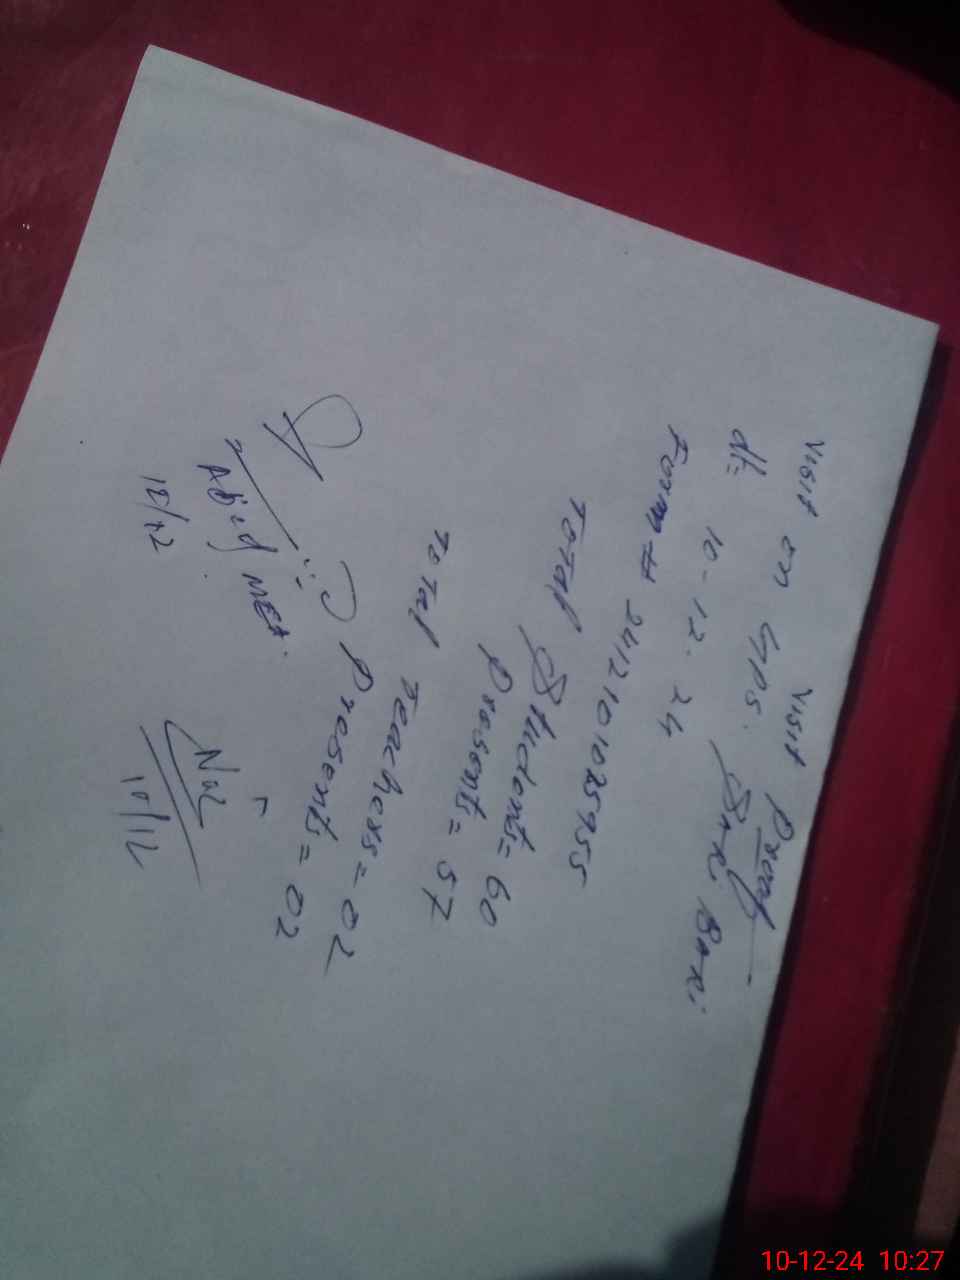 Visit Proof
Visit on GPS. Sari Bari
dt= 10-12-24
Form # 2412101025955
Total Students= 60
Present= 57
Total Teachers= 02
Present= 02
MEA.
10/12
10-12-24 10:27